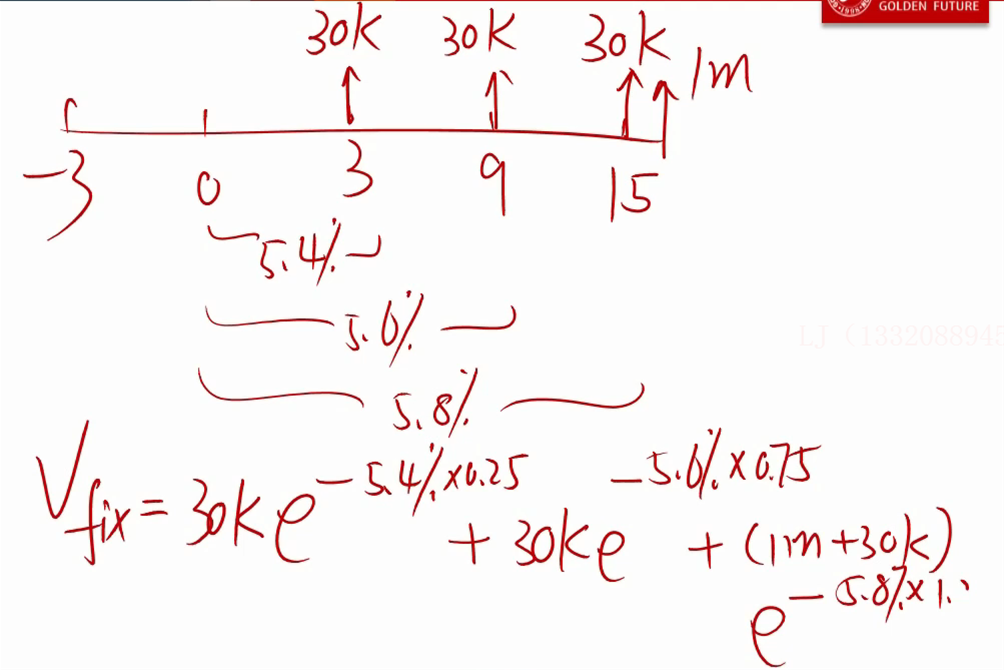 GOLDEN FUTURE
30k 30k 30k 1m
-3 0 3 9 15
5.4%
5.6%
5.8%
V fix = 30k e^{-5.4%×0.25} + 30k e^{-5.6%×0.75} + (1m+30k)
e^{-5.8%×1.
LJ（1332088945